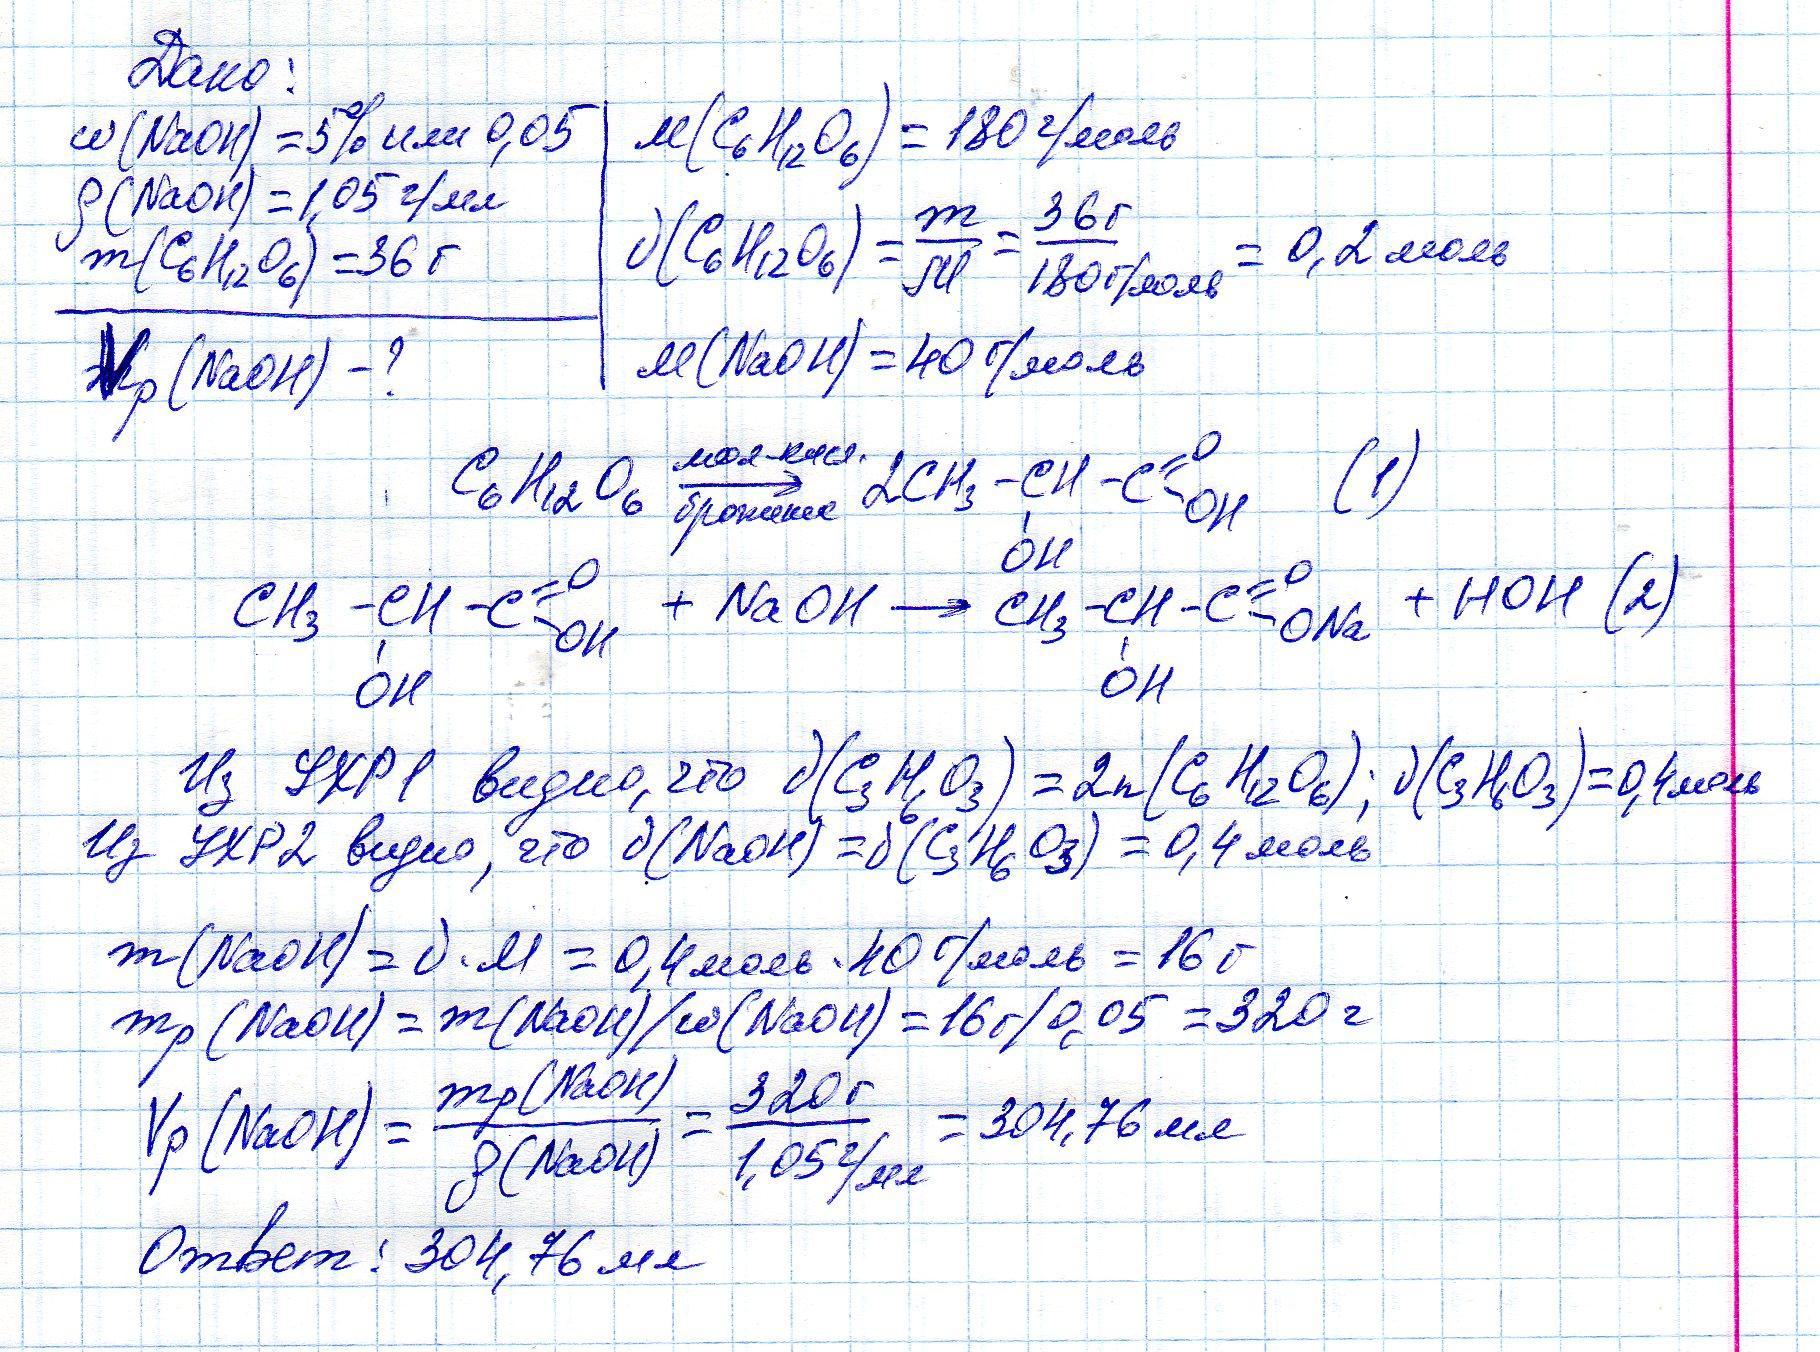 Дано:
w(NaOH) = 5% или 0,05
ρ(NaOH) = 1,05 г/мл
m(C₆H₁₂O₆) = 36 г
Vр(NaOH) - ?
M(C₆H₁₂O₆) = 180 г/моль
ν(C₆H₁₂O₆) = m/M = 36г/180г/моль = 0,2 моль
M(NaOH) = 40 г/моль
C₆H₁₂O₆ →(мол-кисл. брожение) 2CH₃-CH(OH)-C(=O)-OH (1)
CH₃-CH(OH)-C(=O)-OH + NaOH → CH₃-CH(OH)-C(=O)-ONa + HOH (2)
Из УХР1 видно, что ν(C₃H₆O₃) = 2n(C₆H₁₂O₆); ν(C₃H₆O₃) = 0,4 моль
Из УХР2 видно, что ν(NaOH) = ν(C₃H₆O₃) = 0,4 моль
m(NaOH) = ν·M = 0,4 моль · 40 г/моль = 16 г
mр(NaOH) = m(NaOH)/w(NaOH) = 16г/0,05 = 320 г
Vр(NaOH) = mр(NaOH)/ρ(NaOH) = 320г/1,05 г/мл = 304,76 мл
Ответ: 304,76 мл